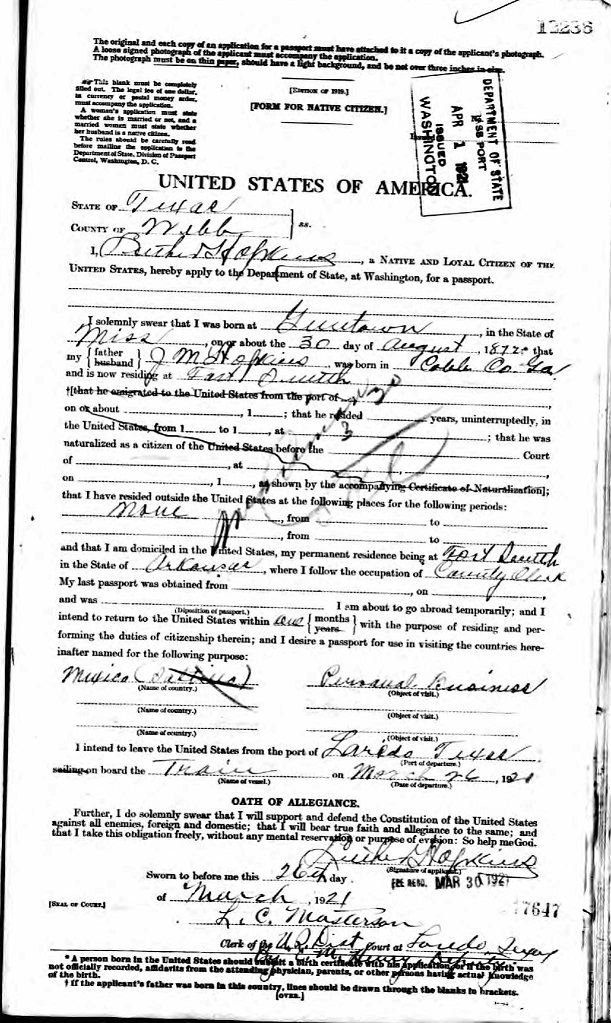 12236
The original and each copy of an application for a passport must have attached to it a copy of the applicant's photograph.
A loose signed photograph of the applicant must accompany the application.
The photograph must be on thin paper, should have a light background, and be not over three inches in size.
This blank must be completely
filled out. The legal fee of one dollar,
in currency or postal money order,
must accompany the application.
A woman's application must
state whether she is married or not, and a
married woman must state whether
her husband is a native citizen.
The rules should be carefully read
before mailing the application to the
Department of State, Division of Passport
Control, Washington, D. C.
[EDITION OF 1919.]
[FORM FOR NATIVE CITIZEN.]
DEPARTMENT OF STATE
PASSPORT
APR 1 1921
ISSUED
WASHINGTON
UNITED STATES OF AMERICA.
STATE OF Texas
COUNTY OF Webb ss.
I, Hopkins, a NATIVE AND LOYAL CITIZEN OF THE
UNITED STATES, hereby apply to the Department of State, at Washington, for a passport.
I solemnly swear that I was born at Guntown, in the State of
Miss, on or about the 30 day of August, 187 that
my {father husband} J M Hopkins was born in Cobb Co. Ga
and is now residing at Fort Smith
†[that he emigrated to the United States from the port of
on or about , 1 ; that he resided years, uninterruptedly, in
the United States, from 1 to 1 , at ; that he was
naturalized as a citizen of the United States before the Court
of , at ,
on , 1 , as shown by the accompanying Certificate of Naturalization];
that I have resided outside the United States at the following places for the following periods:
None , from to
, from to
and that I am domiciled in the United States, my permanent residence being at Fort Smith
in the State of Arkansas, where I follow the occupation of County Clerk
My last passport was obtained from , on
and was I am about to go abroad temporarily; and I
(Disposition of passport.)
intend to return to the United States within one {months years} with the purpose of residing and per-
forming the duties of citizenship therein; and I desire a passport for use in visiting the countries here-
inafter named for the following purpose:
Mexico Personal Business
(Name of country.) (Object of visit.)
(Name of country.) (Object of visit.)
(Name of country.) (Object of visit.)
I intend to leave the United States from the port of Laredo Texas
(Port of departure.)
sailing on board the Train on March 26, 1921
(Name of vessel.) (Date of departure.)
OATH OF ALLEGIANCE.
Further, I do solemnly swear that I will support and defend the Constitution of the United States
against all enemies, foreign and domestic; that I will bear true faith and allegiance to the same; and
that I take this obligation freely, without any mental reservation or purpose of evasion: So help me God.
Hopkins
(Signature of applicant.)
Sworn to before me this 26th day
FEE RECD. MAR 30 1921
of March, 1921
[SEAL OF COURT.]
17647
L. C. Masterson
Clerk of the U S Dist Court at Laredo, Texas
By Deputy
* A person born in the United States should submit a birth certificate with his application, or if the birth was
not officially recorded, affidavits from the attending physician, parents, or other persons having actual knowledge
of the birth.
† If the applicant's father was born in this country, lines should be drawn through the blanks in brackets.
[OVER.]